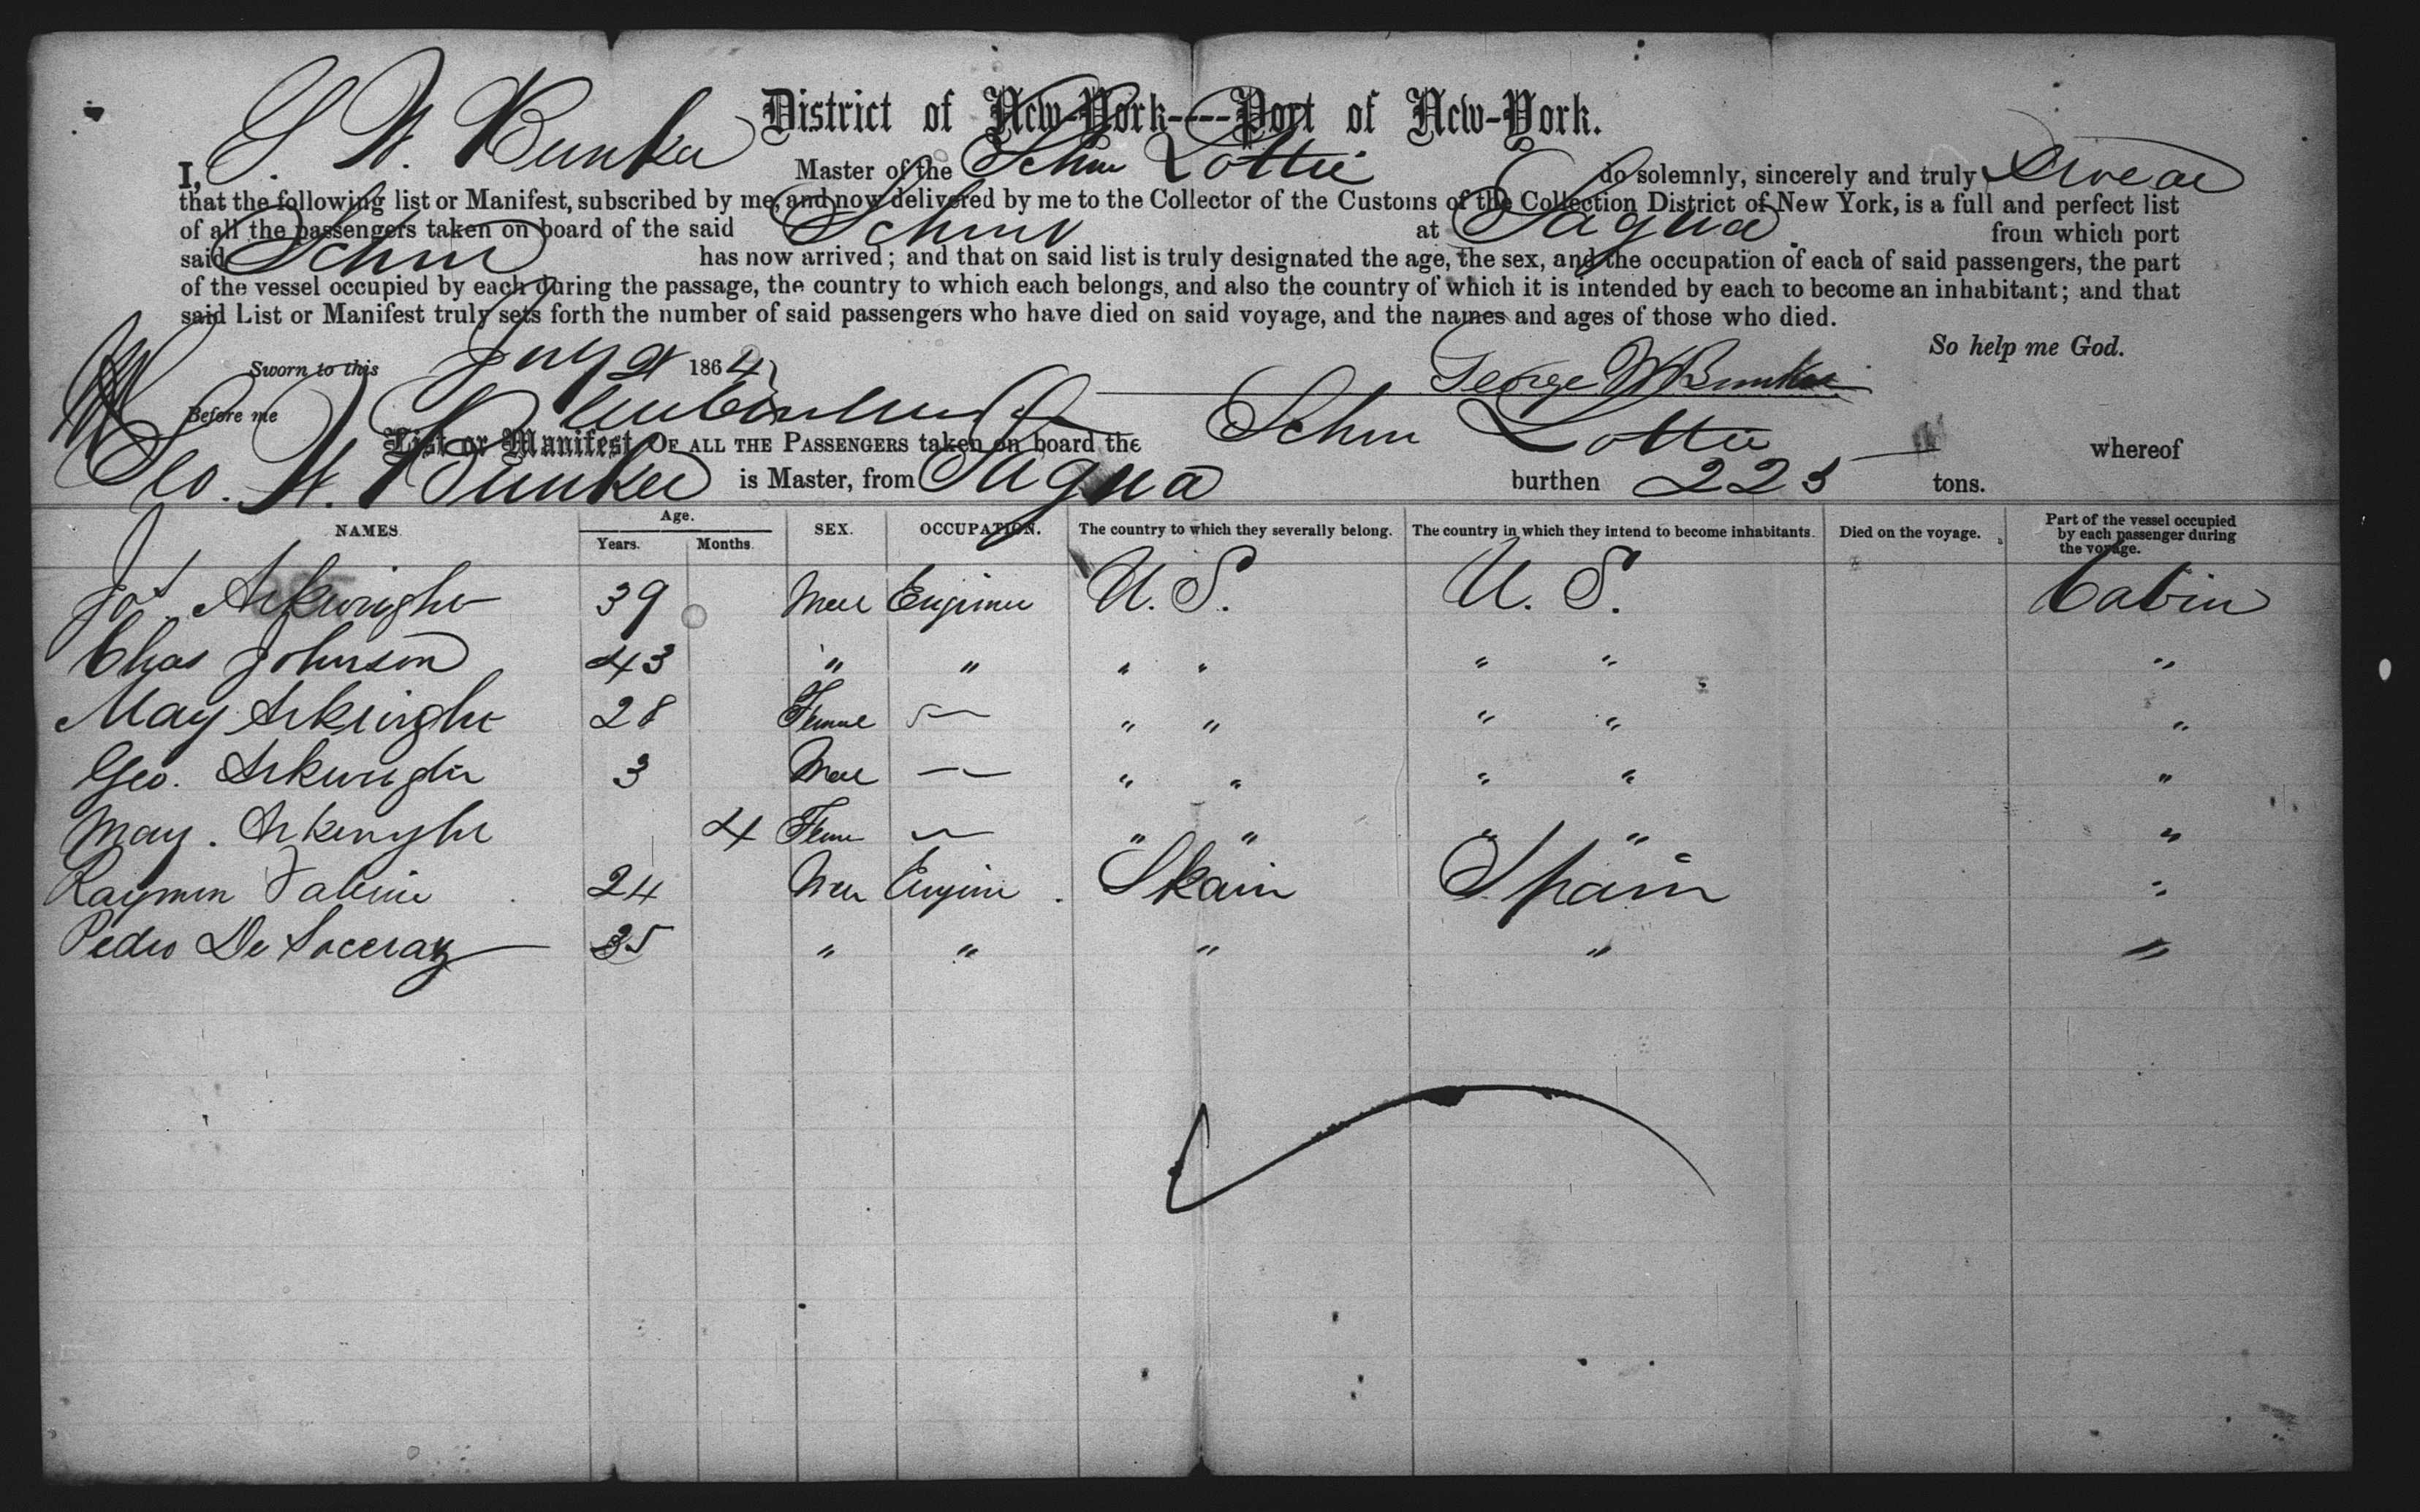 District of New-York----Port of New-York.
I, G. W. Bunker Master of the Schr Lottie do solemnly, sincerely and truly Swear
that the following list or Manifest, subscribed by me, and now delivered by me to the Collector of the Customs of the Collection District of New York, is a full and perfect list
of all the passengers taken on board of the said Schr at Sagua from which port
said Schr has now arrived; and that on said list is truly designated the age, the sex, and the occupation of each of said passengers, the part
of the vessel occupied by each during the passage, the country to which each belongs, and also the country of which it is intended by each to become an inhabitant; and that
said List or Manifest truly sets forth the number of said passengers who have died on said voyage, and the names and ages of those who died.
So help me God.
Sworn to this July 21 1864 George W Bunker
Before me
List or Manifest OF ALL THE PASSENGERS taken on board the Schr Lottie whereof
Geo. W. Bunker is Master, from Sagua burthen 223 tons.
NAMES. Age. Years. Months. SEX. OCCUPATION. The country to which they severally belong. The country in which they intend to become inhabitants. Died on the voyage. Part of the vessel occupied by each passenger during the voyage.
Jas Arkwright 39 Male Engineer U. S. U. S. Cabin
Chas Johnson 43 " " " " " " "
May Arkwright 28 Female — " " " " "
Geo. Arkwright 3 Male — " " " " "
May. Arkwright 4 Fem — " " " " "
Raymon 24 Male Engine Spain Spain "
Pedro De 35 " " " " "